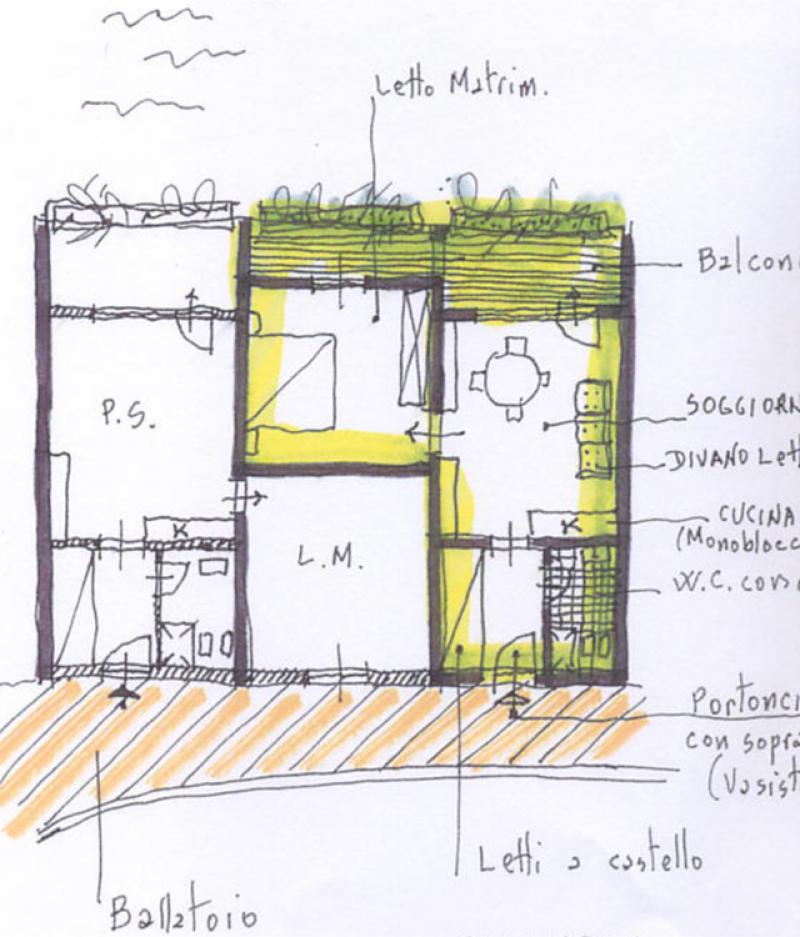 Letto Matrim.
Balcon
P.S.
SOGGIORN
DIVANO Lett
K
K
CUCINA
(Monoblocc
L.M.
W.C. con
Portonci
con sopra
(Vasist
Letti a castello
Ballatoio